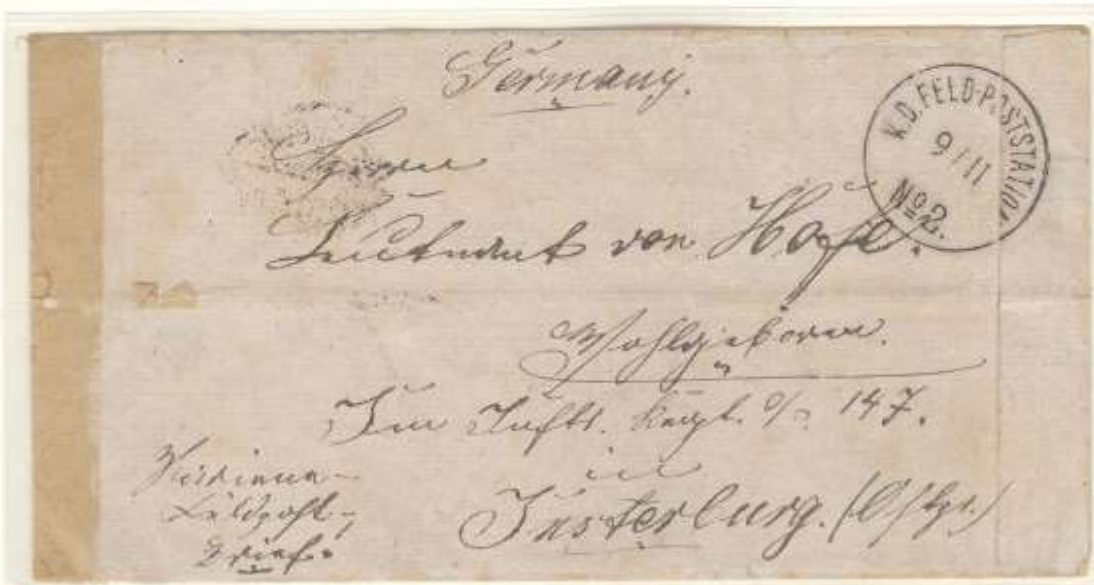 Germany.
K.D. FELD-POSTSTATION
9/11
No 2.
Herrn
Leutnant von
Wohlgeboren.
Inft. Regt. 147.
in
Insterburg. (Ostpr.)
Marine-
Feldpost-
Brief.